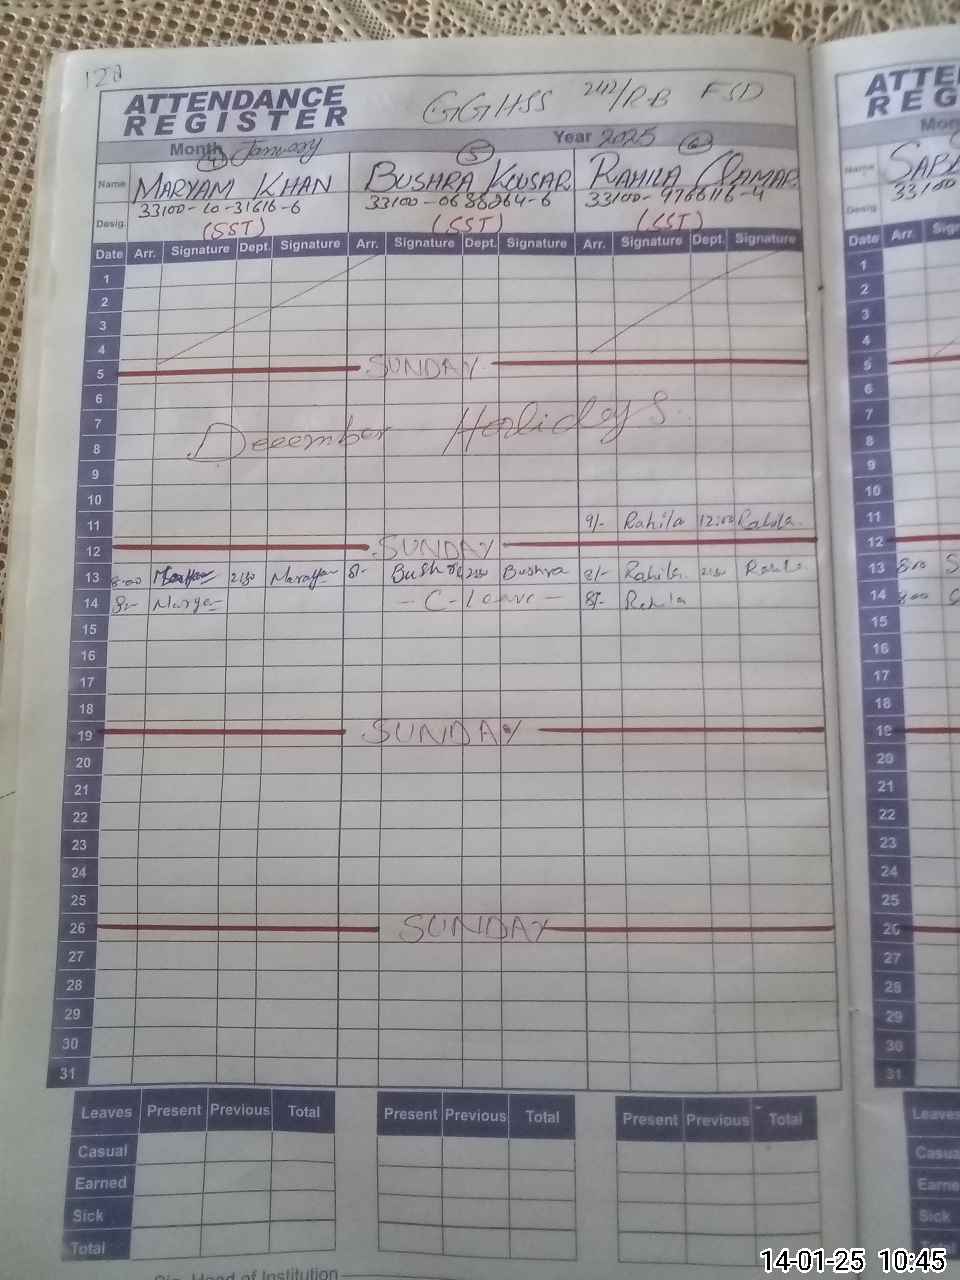 128
ATTENDANCE
REGISTER
GGHSS 242/RB FSD
Month January
Year 2025
4 5 6
Name MARYAM KHAN BUSHRA KOUSAR RAHILA QAMAR
33100-
Desig. (SST) (SST) (SST)
Date Arr. Signature Dept. Signature Arr. Signature Dept. Signature Arr. Signature Dept. Signature
1
2
3
4
5 SUNDAY
6
7
8 December Holidays
9
10
11 9/- Rahila 12:00 Rahila
12 SUNDAY
13 8:00 2:30 8/- Bushra 2:30 Bushra 8/- Rahila 2:30
14 8/- C-Leave 8/- Rahila
15
16
17
18
19 SUNDAY
20
21
22
23
24
25
26 SUNDAY
27
28
29
30
31
Leaves Present Previous Total Present Previous Total Present Previous Total
Casual
Earned
Sick
Total
Head of Institution
ATTE
REG
Mon
Name
33100
Desig.
Date Arr.
1
2
3
4
5
6
7
8
9
10
11
12
13 8:00
14 8:00
15
16
17
18
19
20
21
22
23
24
25
26
27
28
29
30
31
Leaves
Casua
Earne
Sick
Total
14-01-25 10:45